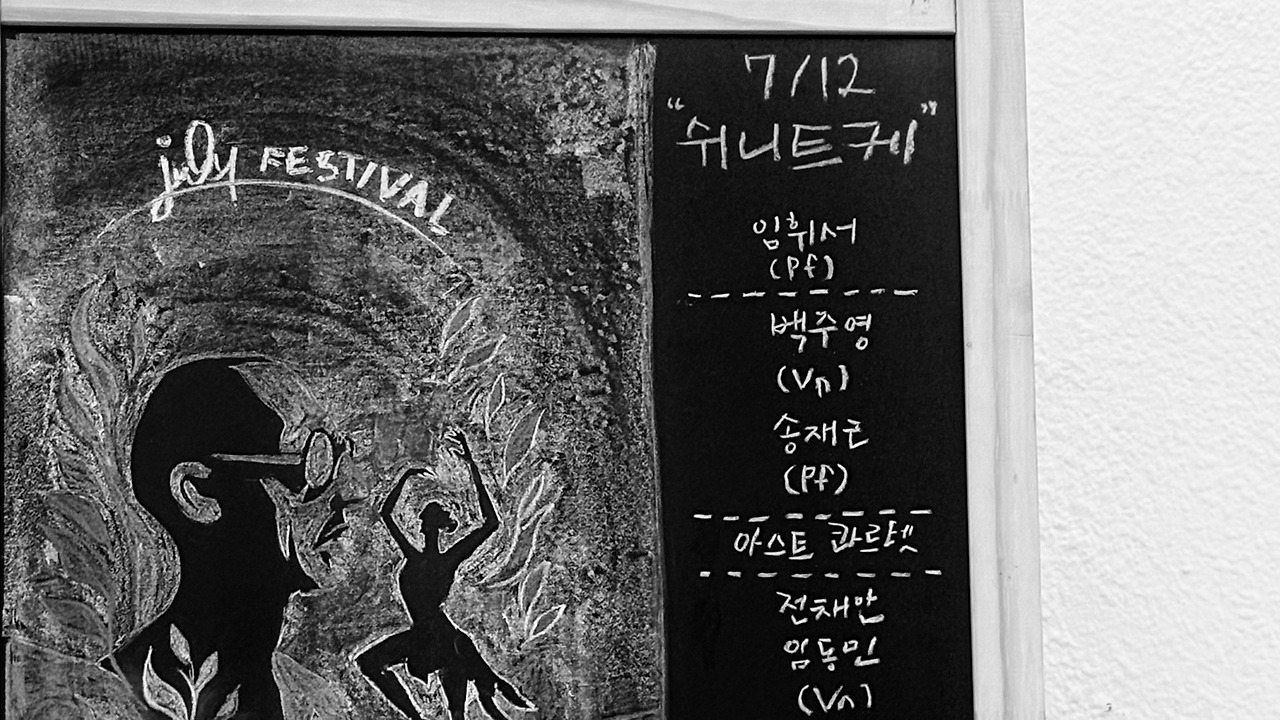 july FESTIVAL
7/12
"쉬니트케"
임휘서
(Pf)
백주영
(Vn)
송재근
(Pf)
아스트 콰르텟
전채안
임동민
(Vn)